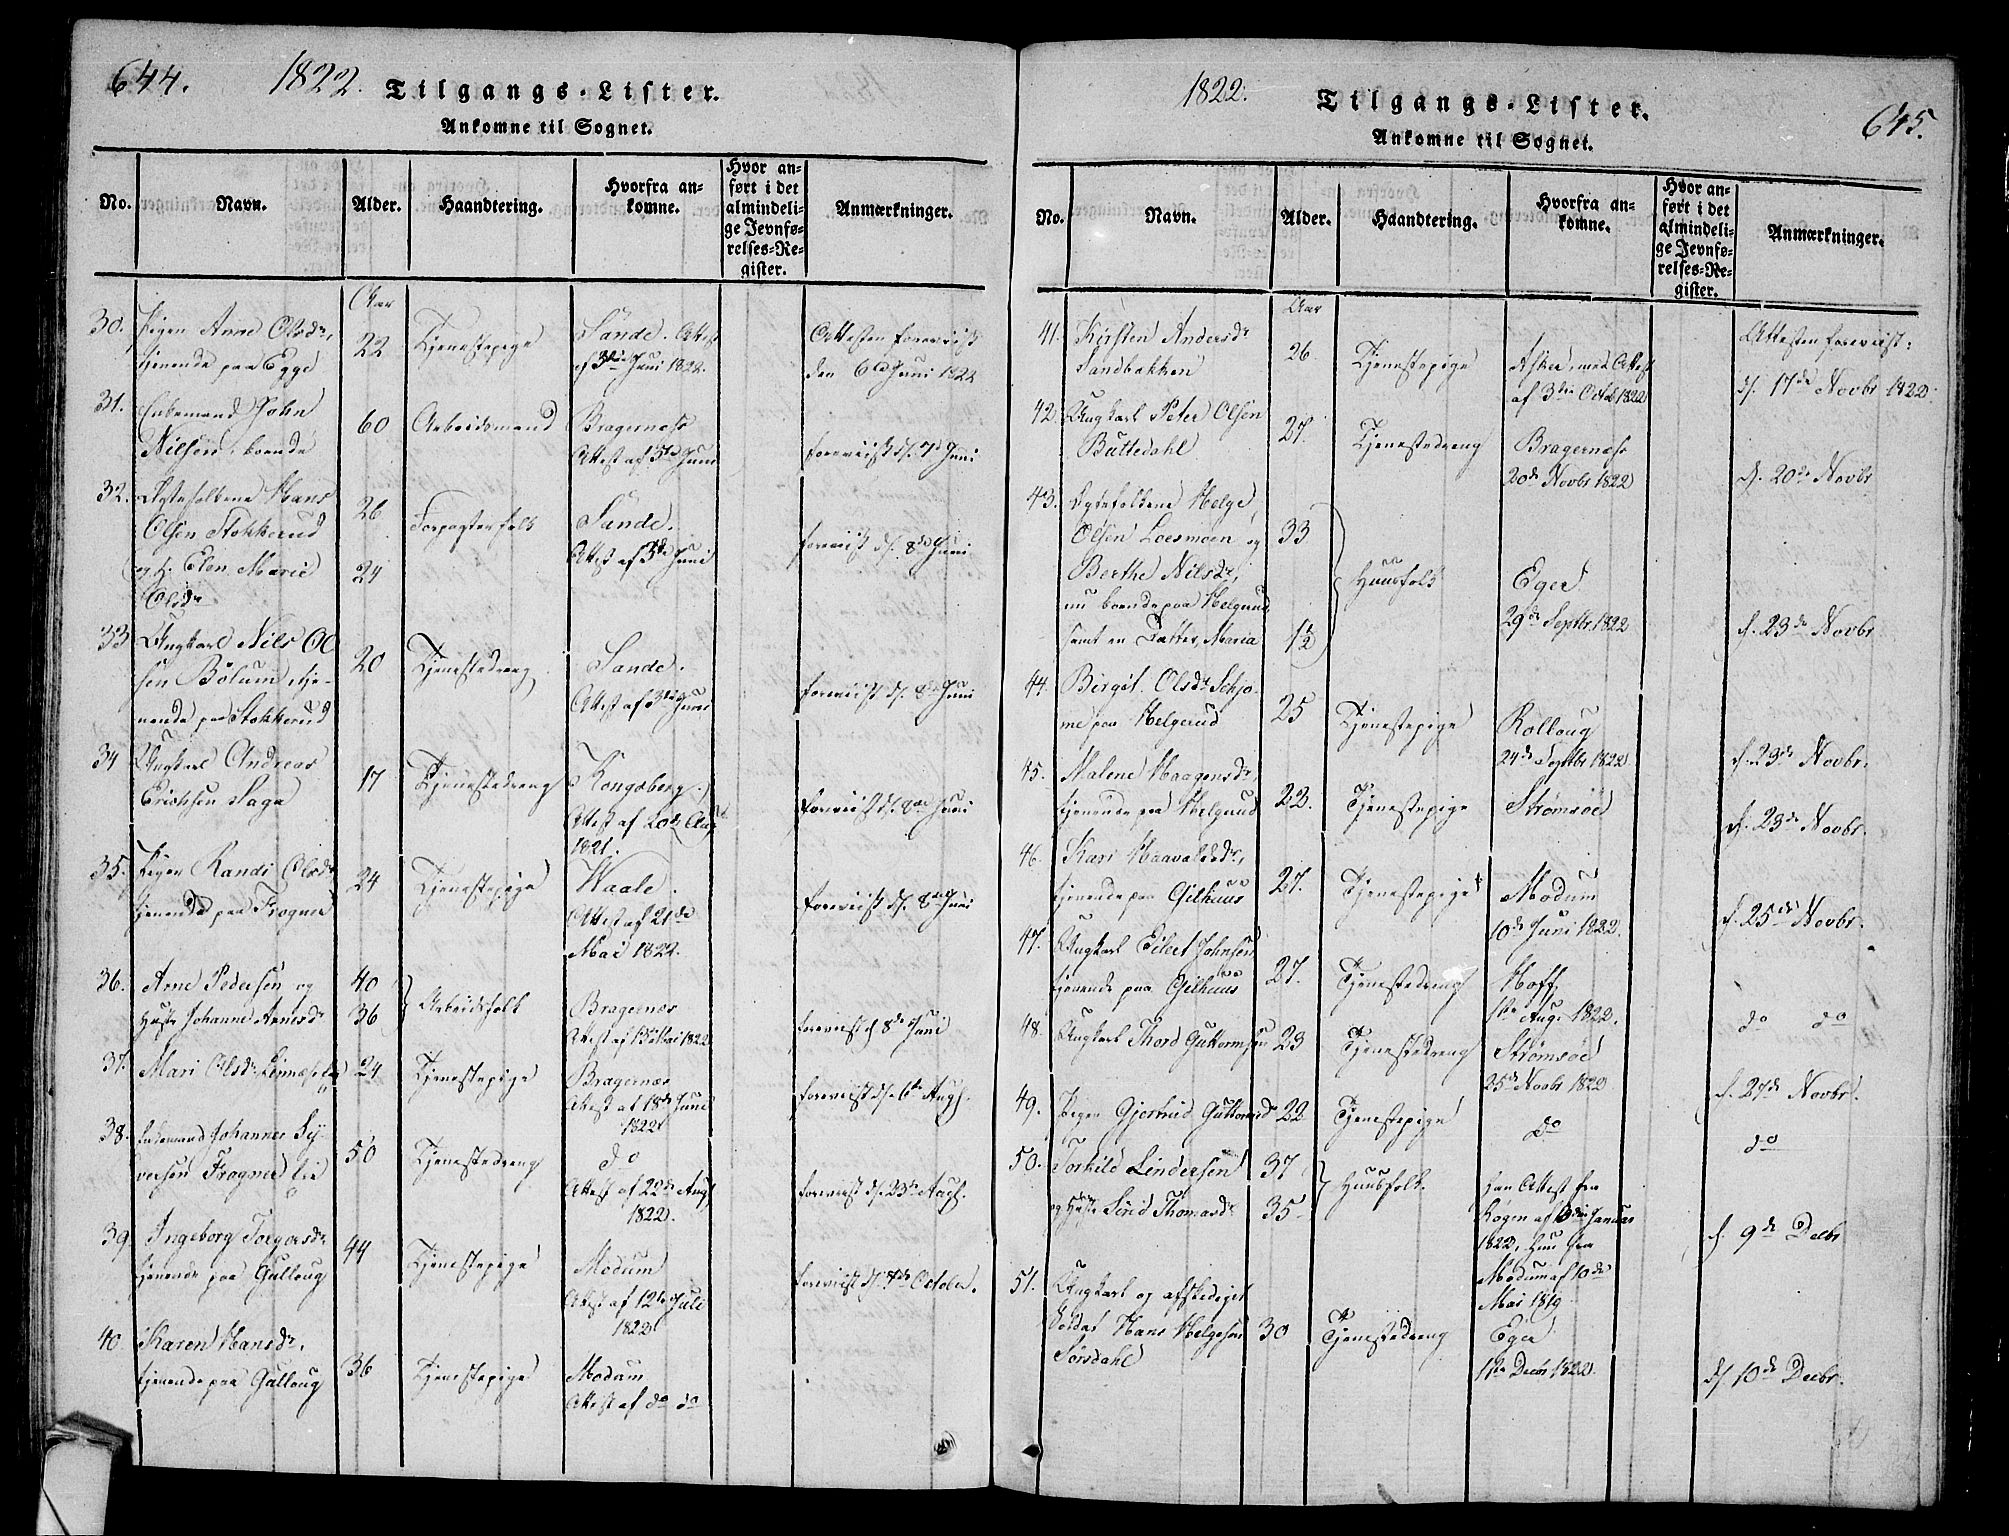 644.
1822.
Tilgangs-Lister.
Ankomne til Sognet.
No. Navn. Alder. Haandtering. Hvorfra an-komne. Hvor an-ført i det almindeli-ge Jevnfø-relses-Re-gister. Anmærkninger.
Aar
30. Pigen Anne Olsdr, 22 Tjenestepige Sande. Attest Attesten foreviist
tjenende paa Egge af 3die Juni 1822. den 6te Juni 1822
31. Enkemand John 60 Arbeidsmand Bragernæs
Nilsen, boende Attest af 3die Juni foreviist d. 7de Juni
32. Ægtefolkene Hans 26 Forpagterfolk Sande.
Olsen Stokkerud Attest af 3die Juni foreviist d. 8de Juni
og h. Elen Marie 24
Olsdr
33 Ungkarl Nils Ol 20 Tjenestedreng Sande.
sen Bölum, tje- Attest af 3die Juni foreviist d. 8de Juni
nende paa Stokkerud
34 Ungkarl Andreas 17 Tjenestedreng Kongsberg.
Erichsen Saga Attest af 20de Aug foreviist d. 8de Juni
1821.
35. Pigen Randi Olsdr 24 Tjenestepige Waale.
tjenende paa Frogner Attest af 21de foreviist d. 8de Juni
Mai 1822.
36. Arne Pedersen og 40 Arbeidsfolk Bragernæs
Hustr Johanne Arnesdr 36 foreviist d 8de Juni
37. Mari Olsdr 24 Tjenestepige Bragernæs
Attest af 18de Juni foreviist d. 6te Augs.
1822
38. Enkemand Johannes Sy- 50 Tjenestedreng do
versen Frognerlie Attest af 22de Augs foreviist d. 23de Augs.
1822.
39. Ingeborg Torgersdr 44 Tjenestepige Modum
tjenende paa Gulloug Attest af 12te Juli foreviist d. 7de October.
1822
40. Karen Hansdr. 36 Tjenestepige Modum
tjenende paa Gulloug Attest af do do
1822.
Tilgangs-Lister.
645.
Ankomne til Sognet.
No. Navn. Alder. Haandtering. Hvorfra an-komne. Hvor an-ført i det almindeli-ge Jevnfø-relses-Re-gister. Anmærkninger.
Aar
41. Kirsten Andersdr 26 Tjenestepige Asker, med Attest Attesten foreviist:
Sandbakken af 3die Octob 1822 d. 17de Novbr 1822.
42. Ungkarl Peter Olsen 27. Tjenestedreng Bragernæs
Buttedahl 20de Novbr 1822 d. 20de Novbr
43. Ægtefolkene Helge
Olsen Loesmoen og 33
Berthe Nilsdr, Huusfolk Eger
nu boende paa Helgerud, 29de Septbr 1822 d. 23de Novbr
samt en Datter, Maria 1½
44. Birgit Olsdr Skjo- 25 Tjenestepige Rolloug
me paa Helgerud 24de Septbr 1822 d. 23de Novbr.
45. Malene Haagensdr 22. Tjenestepige Strømsöe
tjenende paa Helgerud d. 23de Novbr.
46. Kari Haavaldsdr, 27. Tjenestepige Modum
tjenende paa Gilhuus 10de Juni 1822. d. 25de Novbr.
47. Ungkarl Eilert Johnsen 27. Tjenestedreng Hoff
tjenende paa Gilhuus 1ste Aug. 1822. do do
48. Ungkarl Thord Guttormsen 23 Tjenestedreng Strømsöe
25de Novbr 1822 d. 27de Novbr.
49. Pigen Gjertrud Guttormsdr 22 Tjenestepige do do
50. Torkild Lindersen 37 Huusfolk. Han Attest fra
og Hustr Sirid Thomasdr 35 Røgen af Januar
1822, Hun fra d. 9de Decbr
Modum af 10de
Mai 1819
51. Ungkarl og afskediget
Soldat Hans Helgesen 30 Tjenestedreng Eger
Sørsdahl 1ste Decbr 1822. d. 10de Decbr.